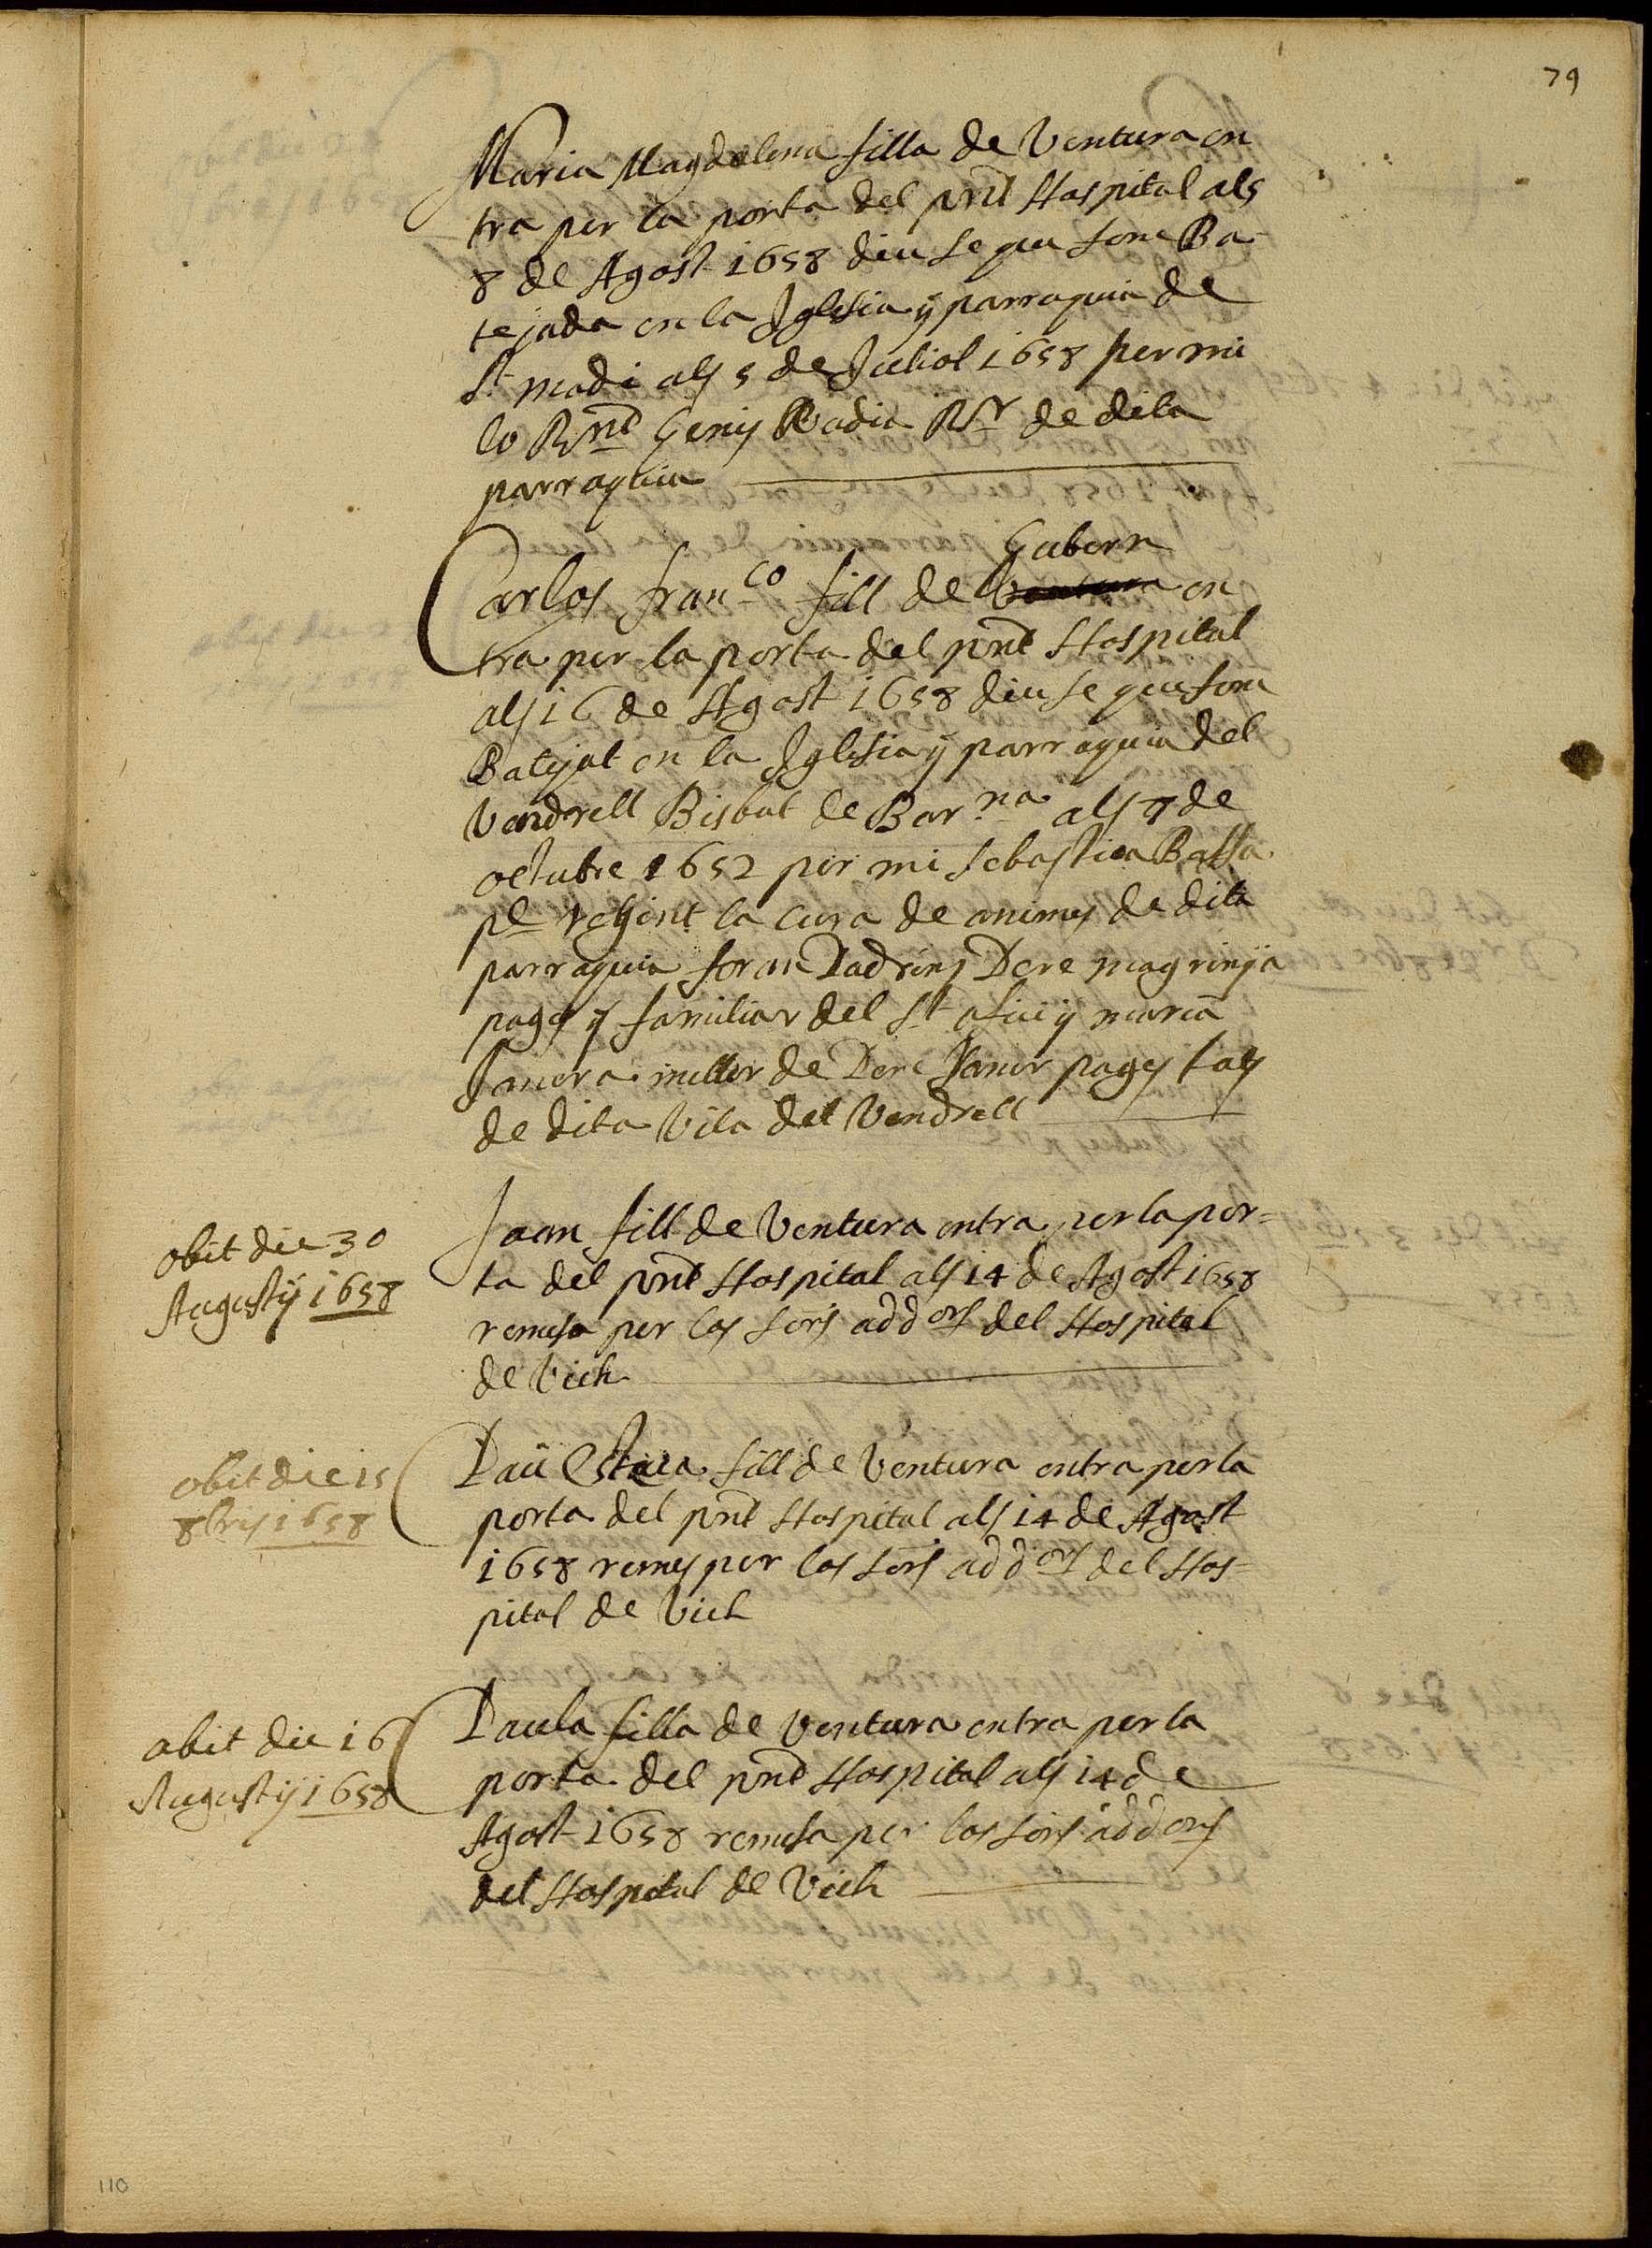 79
Maria Magdalena filla de Ventura en
tra per la porta del pnt Hospital als
8 de Agost 1658 diu se que fone Ba-
tejada en la Iglesia y parraquia de
St madi als 5 de Juliol 1658 per mi
lo Rnt Genis Badia Rr de dita
parraquia
Gubern
Carlos franco fill de Ventura en
tra per la porta del pnt Hospital
als 16 de Agost 1658 diu se que fone
Batejat en la Iglesia y parraquia del
Vendrell Bisbat de Barna als 7 de
octubre 1652 per mi Sebastia Bassa
pe regint la cura de animes de dita
parraquia foran Padrins Pere magrinya
pages y familiar del St ofici y maria
Janera muller de Pere Janer pages tots
de dita Vila del Vendrell
obit die 30
Augustij 1658
Joan fill de Ventura entra per la por=
ta del pnt Hospital als 14 de Agost 1658
remesa per los Sors addors del Hospital
de Vich
obit die 15
8bris 1658
Pau Estava fill de Ventura entra per la
porta del pnt Hospital als 14 de Agost
1658 remes per los Sors addors del Hos-
pital de Vich
obit die 16
Augustij 1658
Paula filla de Ventura entra per la
porta del pnt Hospital als 14 de
Agost 1658 remesa per los Sors addors
del Hospital de Vich
110